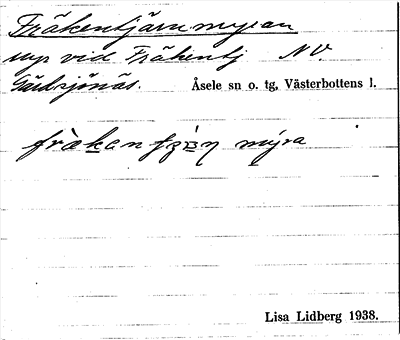 Fräkentjärnmyran
myr vid Fräkentj NV.
Gärdsjönäs. Åsele sn o. tg, Västerbottens l.
myra
Lisa Lidberg 1938.